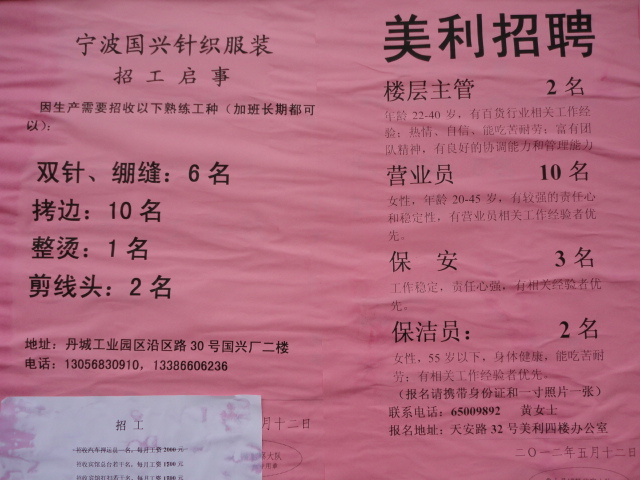 宁波国兴针织服装
招工启事
因生产需要招收以下熟练工种（加班长期都可
以）：
双针、绷缝：6 名
拷边：10 名
整烫：1 名
剪线头：2 名
地址：丹城工业园区沿区路 30 号国兴厂二楼
电话：13056830910，13386606236
月十二日
招 工
招收宾馆总台若干名，每月工资1500元
美利招聘
楼层主管 2 名
年龄 22-40 岁，有百货行业相关工作经
验；热情、自信、能吃苦耐劳；富有团
队精神，有良好的协调能力和管理能力
营业员 10 名
女性，年龄 20-45 岁，有较强的责任心
和稳定性，有营业员相关工作经验者优
先。
保 安 3 名
工作稳定，责任心强，有相关经验者优
先。
保洁员： 2 名
女性，55 岁以下，身体健康，能吃苦耐
劳；有相关工作经验者优先。
（报名请携带身份证和一寸照片一张）
联系电话：65009892 黄女士
报名地址：天安路 32 号美利四楼办公室
二〇一二年五月十二日